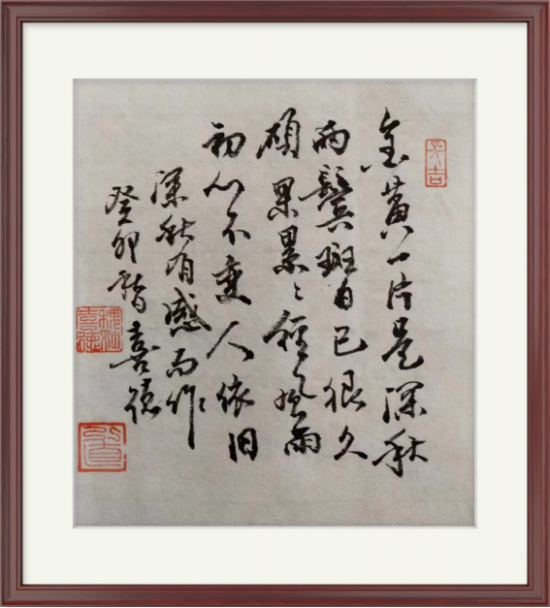 金黄一片是深秋
两鬓斑白已很久
硕果累々经风雨
初心不变人依旧
深秋有感而作
癸卯 喜德
大吉